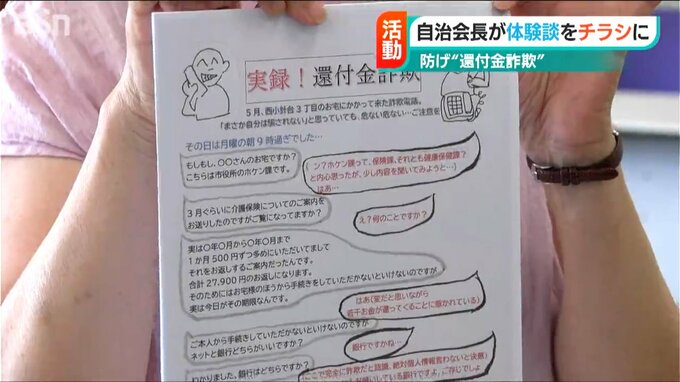 活動
自治会長が体験談をチラシに
防げ“還付金詐欺”
実録!還付金詐欺
5月、西小針台3丁目のお宅にかかって来た詐欺電話。
「まさか自分は騙されない」と思っていても、危ない危ない…ご注意を
その日は月曜の朝9時過ぎでした…
もしもし、〇〇さんのお宅ですか?
こちらは市役所のホケン課です。
(ン?ホケン課って、保険課、それとも健康保健課?
と内心思ったが、少し内容を聞いてみようと…)
はあ…
3月ぐらいに介護保険についてのご案内を
お送りしたのですがご覧になってますか?
え?何のことですか?
実は〇年〇月から〇年〇月まで
1か月500円ずつ多めにいただいてまして
それをお返しするご案内だったんです。
合計27,900円のお返しになります。
そのためにはお宅様のほうから手続きをしていただかないといけないのですが
実は今日がその期限なんです。
はあ(変だと思いながら
若干お金が還ってくることに惹かれている)
ご本人から手続きしていただかないといけないのですが
ネットと銀行どちらがいいですか?
銀行ですかね…
わかりました。銀行はどちらですか?
で完全に詐欺だと認識、絶対個人情報言わないと決意)
している銀行ですよ、ご存じでしょ